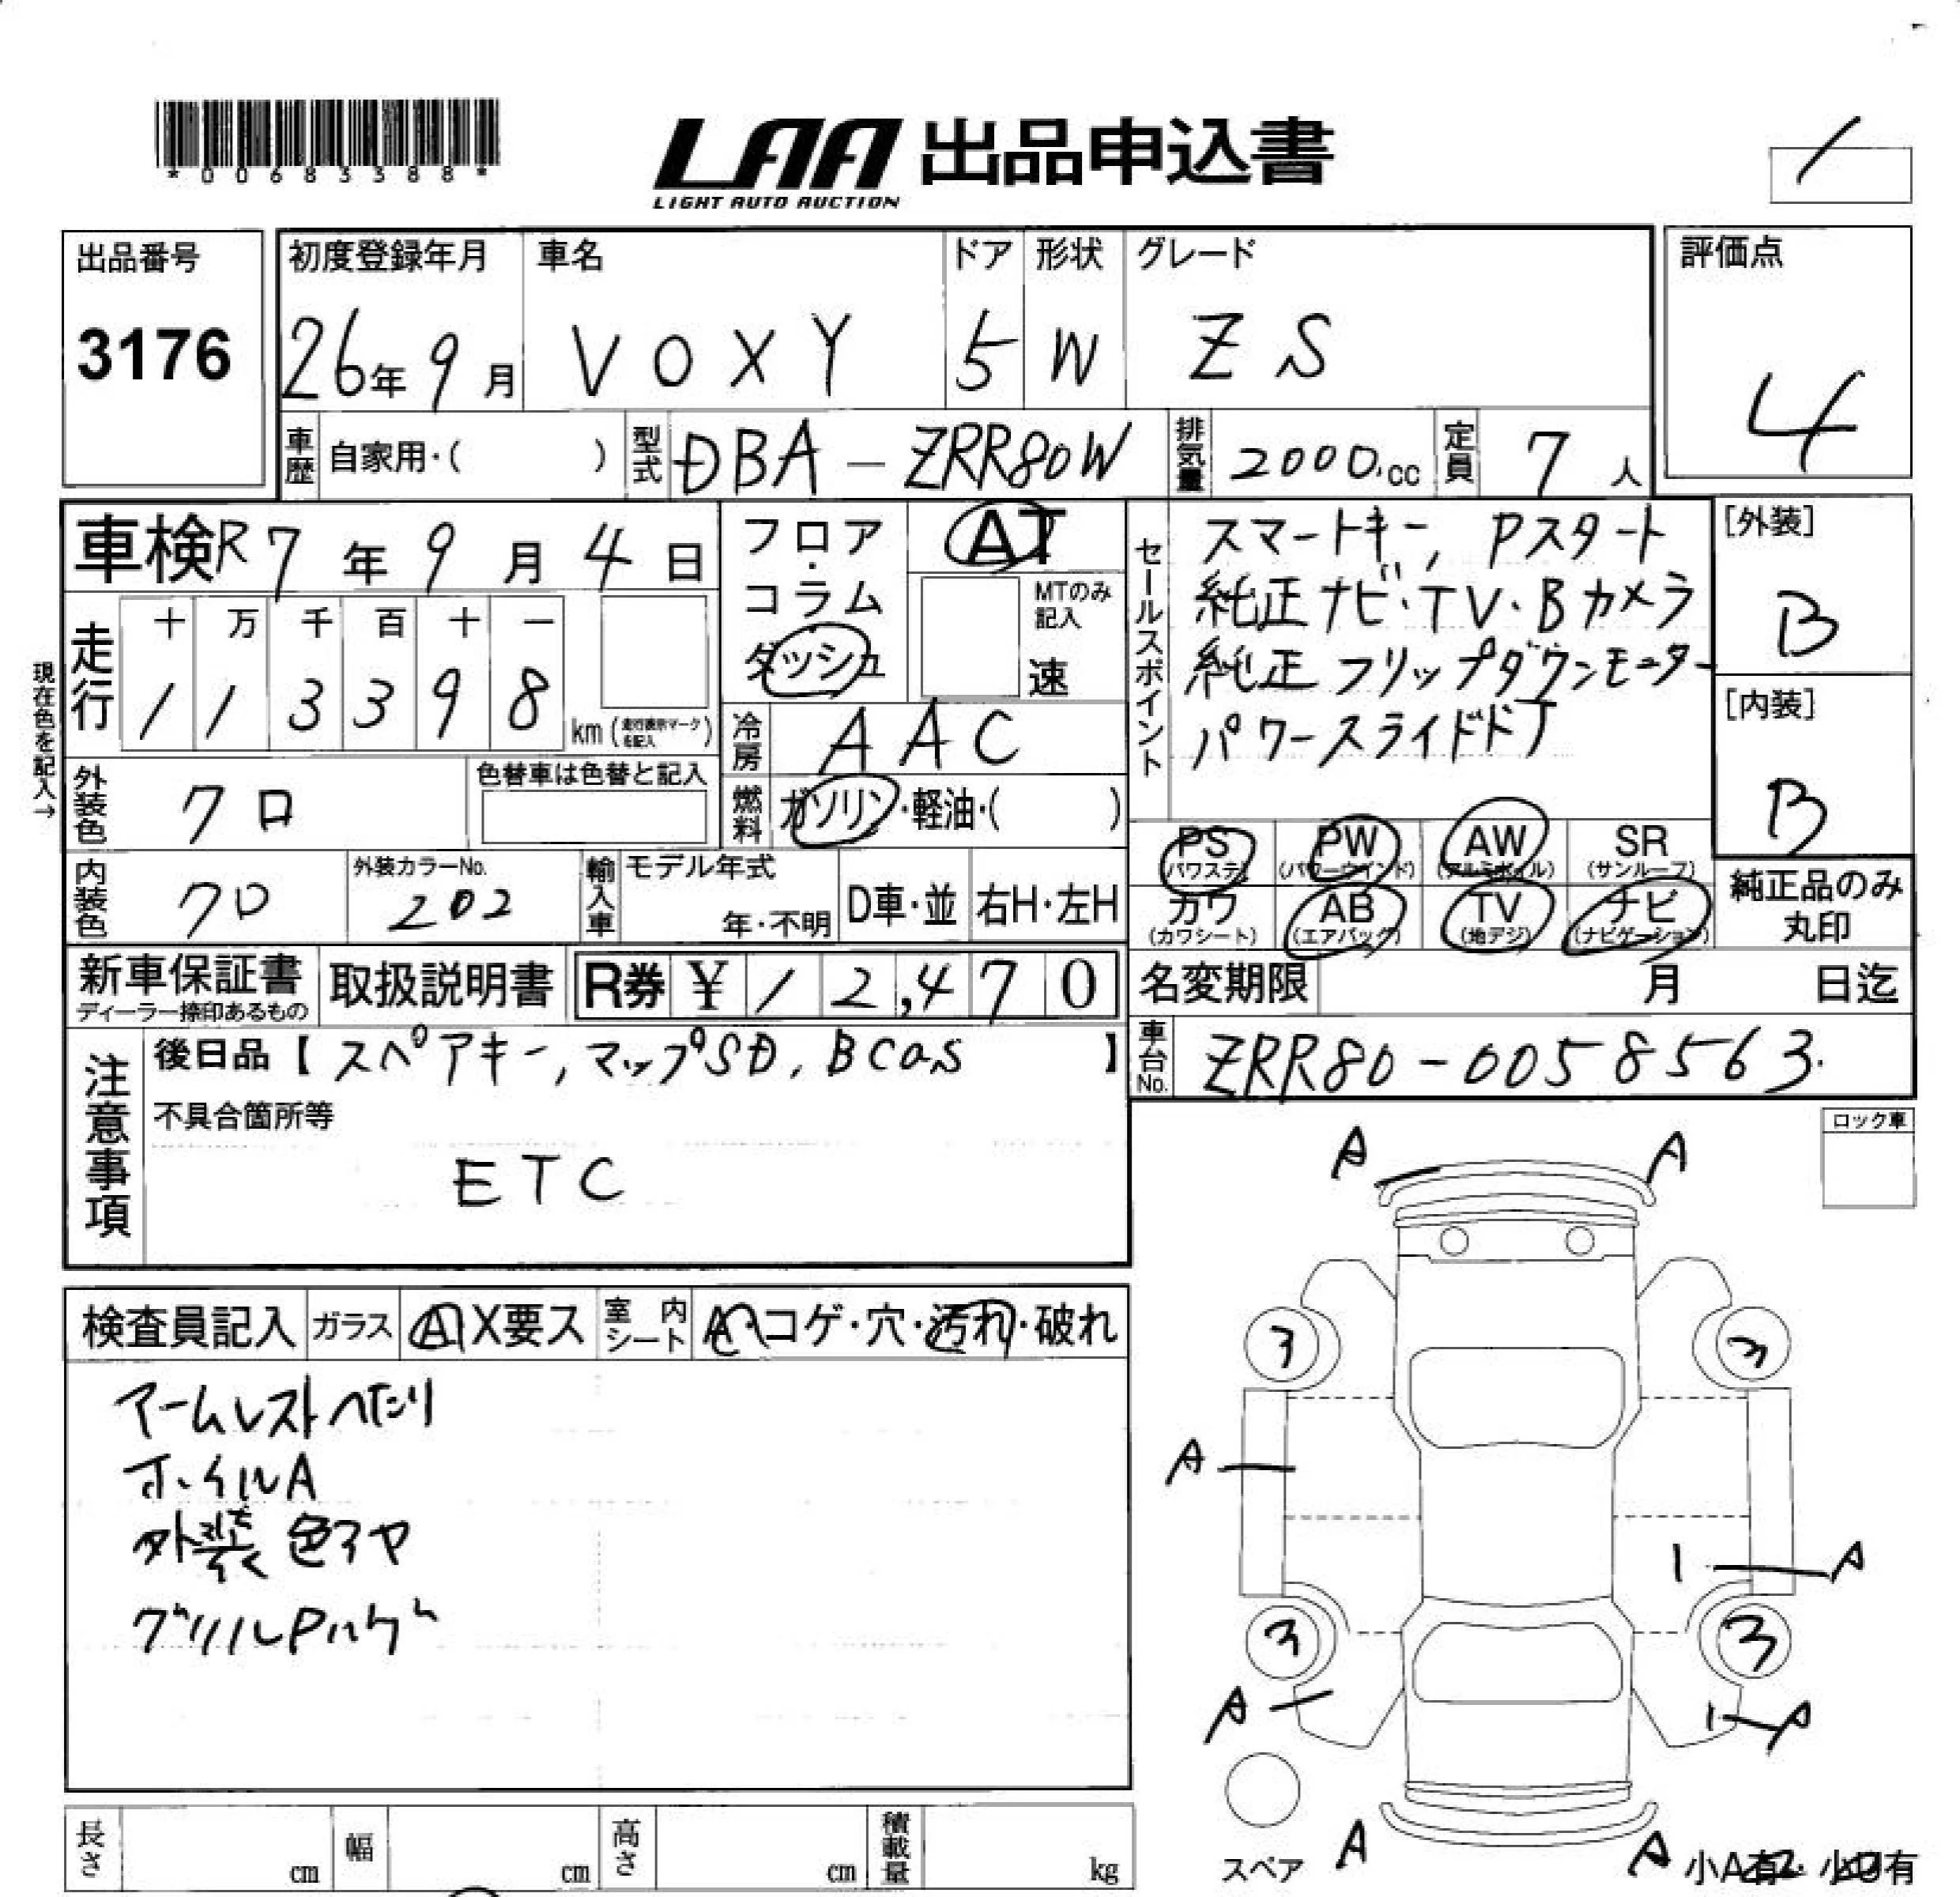 *00683388*
LAA 出品申込書
LIGHT AUTO AUCTION
出品番号
3176
初度登録年月
26年 9月
車名
VOXY
ドア
5
形状
W
グレード
ZS
評価点
4
車歴 自家用・( )
型式 DBA-ZRR80W
排気量 2000.cc
定員 7人
車検 R7年 9月 4日
フロア・コラム ダッシュ
AT
MTのみ記入
速
セールスポイント
スマートキー, Pスタート
純正ナビ・TV・Bカメラ
純正フリップダウンモニター
パワースライドドア
[外装]
B
[内装]
B
現在色を記入→
走行
十 万 千 百 十 一
1 1 3 3 9 8
km (走行表示マークを記入)
冷房 AAC
外装色 クロ
色替車は色替と記入
燃料 ガソリン・軽油・( )
内装色 クロ
外装カラーNo.
202
輸入車
モデル年式
年・不明
D車・並
右H・左H
PS (パワステ)
PW (パワーウインド)
AW (アルミホイル)
SR (サンルーフ)
カワ (カワシート)
AB (エアバッグ)
TV (地デジ)
ナビ (ナビゲーション)
純正品のみ丸印
新車保証書
ディーラー捺印あるもの
取扱説明書
R券 ¥12,470
名変期限 月 日迄
車台No. ZRR80-0058563.
注意事項
後日品【スペアキー, マップSD, BCAS】
不具合箇所等
ETC
ロック車
検査員記入
ガラス A X要ス
室内シート A・コゲ・穴・汚れ・破れ
アームレストヘたり
ホイルA
外装 色アヤ
グリルPハゲ
A A
3 3
A
1 A
3 3
A
1 A
スペア
A A
小A有・小U有
長さ cm
幅 cm
高さ cm
積載量 kg